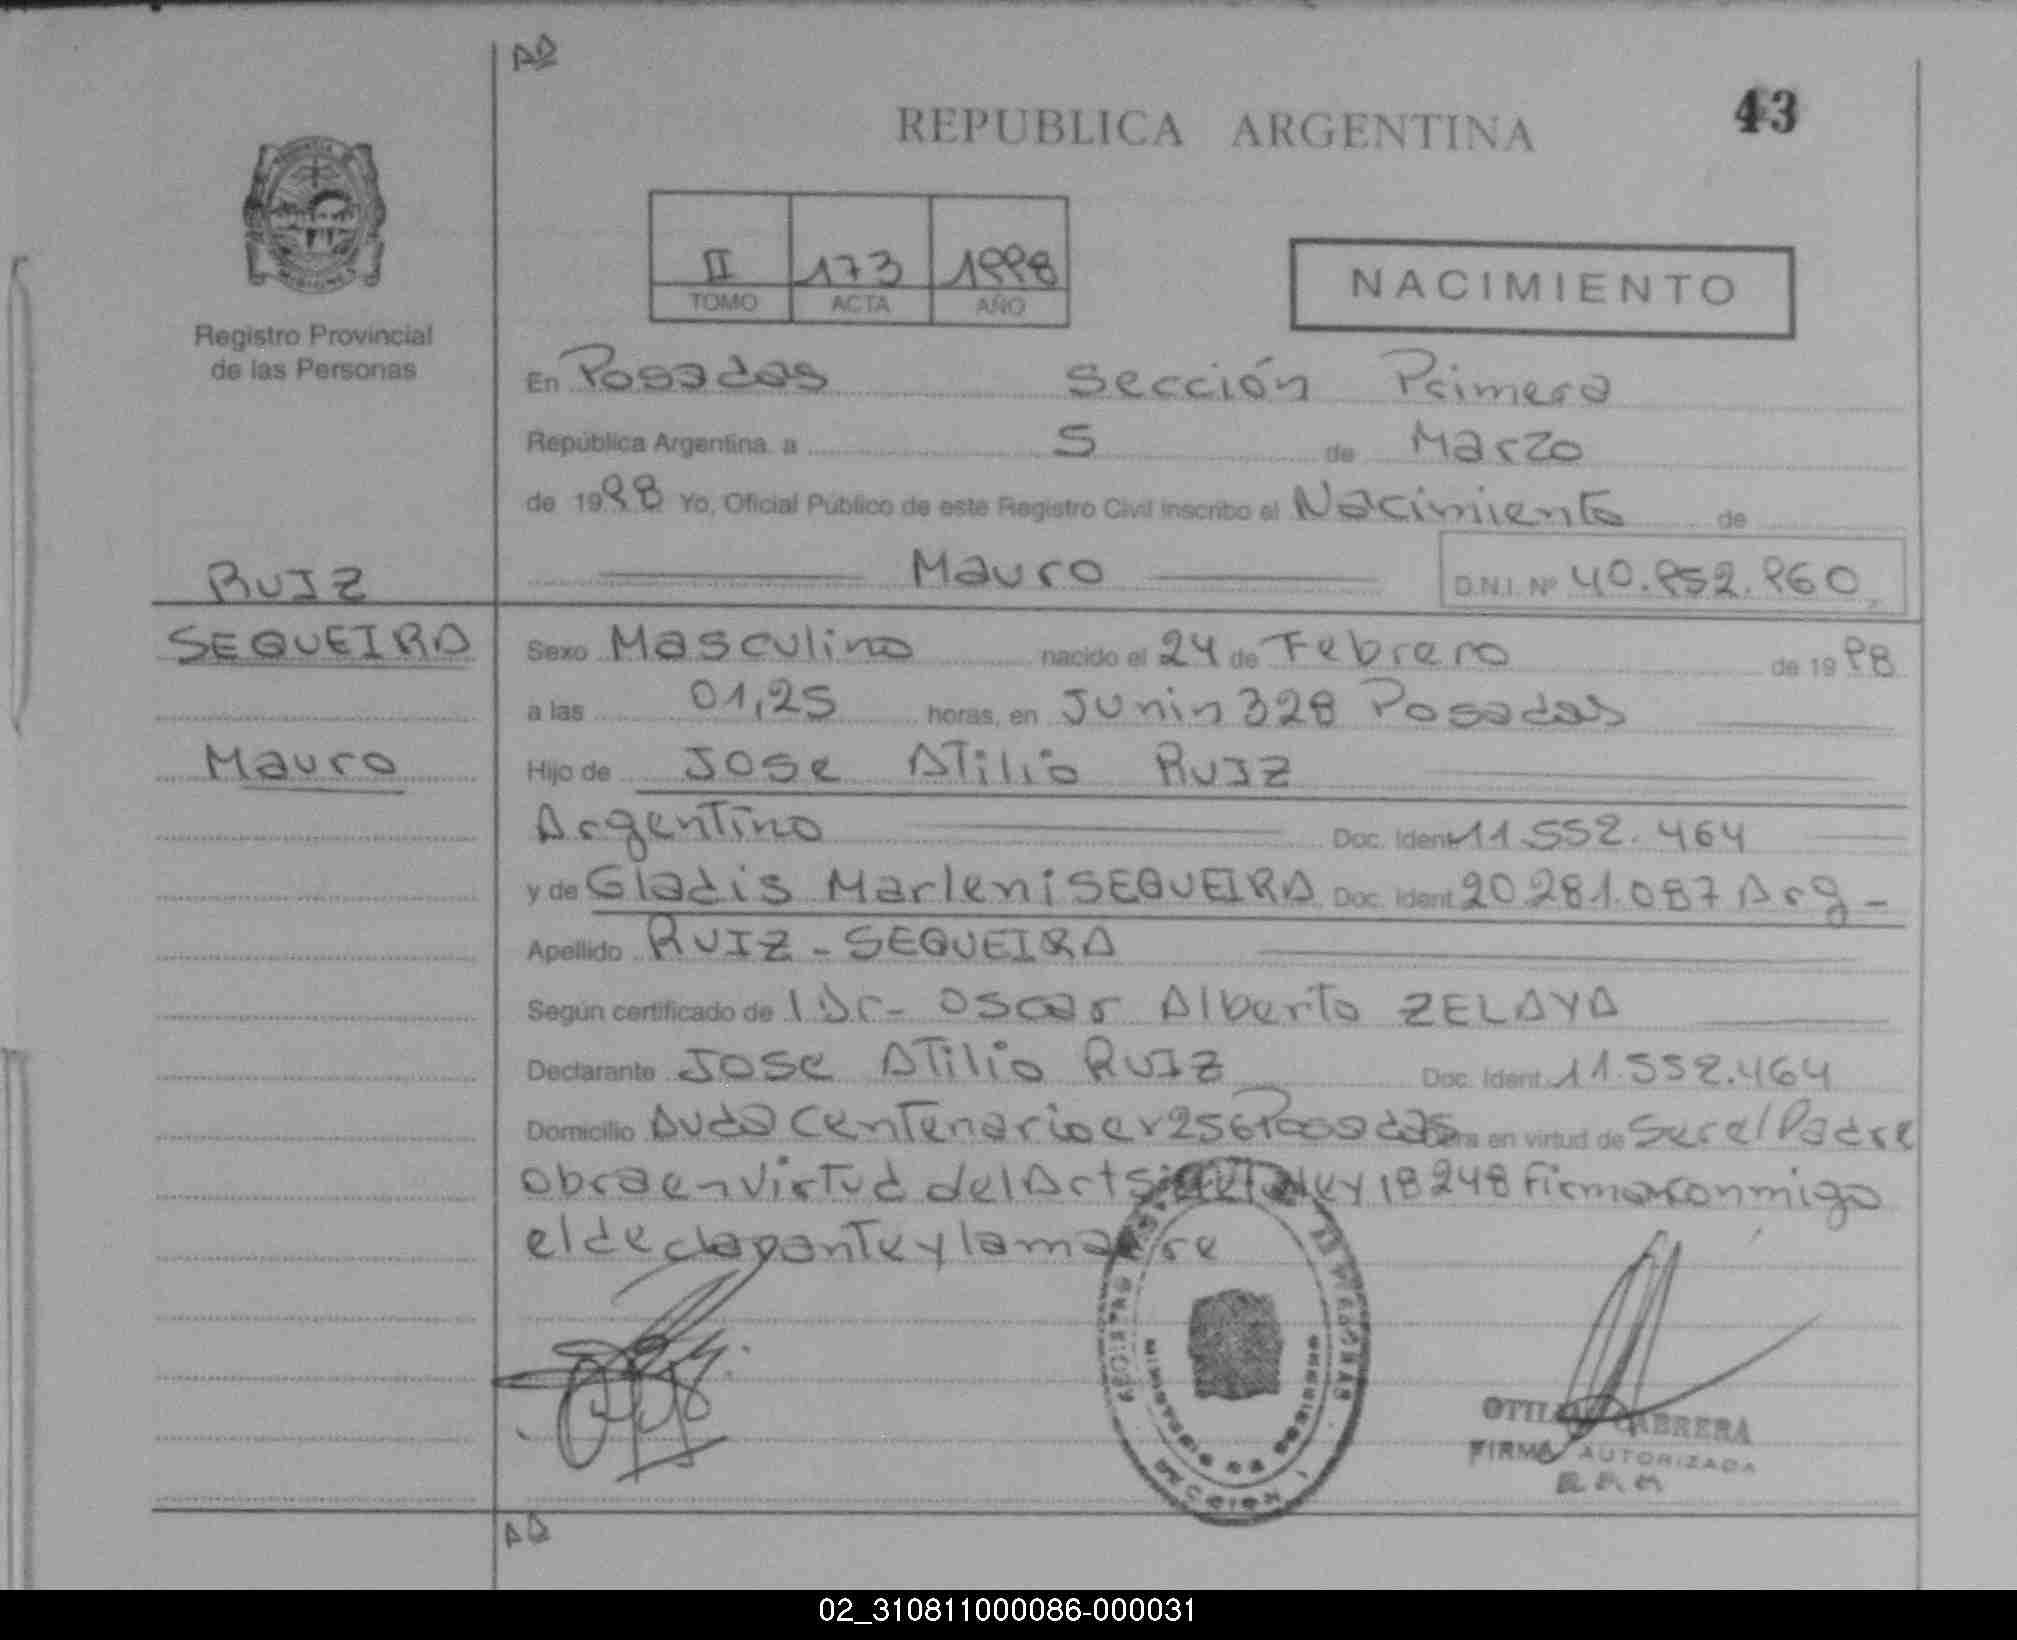 AD
REPUBLICA ARGENTINA
43
II 173 1998
TOMO ACTA AÑO
NACIMIENTO
Registro Provincial
de las Personas
En Posadas Sección Primera
República Argentina, a 5 de Marzo
de 1998 Yo, Oficial Público de este Registro Civil inscribo el Nacimiento de
Mauro D.N.I. Nº 40.952.960
RUIZ
SEQUEIRA
Mauro
Sexo Masculino nacido el 24 de Febrero de 1998
a las 01,25 horas, en Junin 328 Posadas
Hijo de Jose Atilio RUIZ
Argentino Doc. Ident. 11.552.464
y de Gladis Marleni SEQUEIRA Doc. Ident. 20.281.087 Arg-
Apellido RUIZ - SEQUEIRA
Según certificado de l Dr- Oscar Alberto ZELAYA
Declarante Jose Atilio RUIZ Doc. Ident. 11.552.464
Domicilio Avda Centenario 256 Posadas en virtud de Ser el Padre
obra en virtud del Art 5 de la Ley 18248 Firman conmigo
el declarante y la madre
REGISTRO DE LAS PERSONAS
MISIONES
SECCION 1
CABRERA
FIRMA AUTORIZADA
R.P.M
AD
02_310811000086-000031